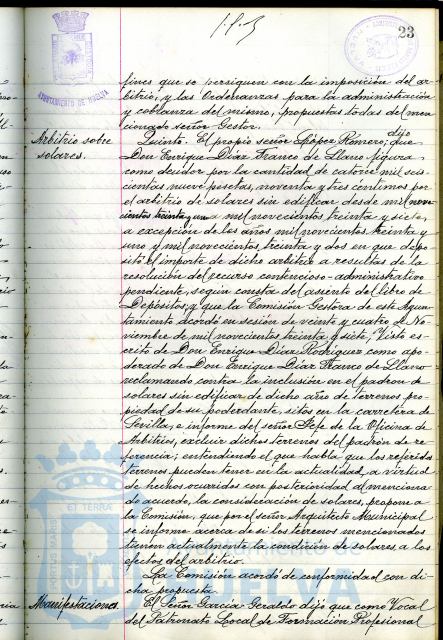 23
AYUNTAMIENTO DE HUELVA
fines que se persiguen con la imposición del ar-
bitrio, y las Ordenanzas para la administración
y cobranza del mismo, propuestas todas del men-
cionado señor Gestor.
Arbitrio sobre
solares.
Quinto. El propio señor López Romero, dijo que
Don Enrique Díaz Franco de Llano figura
como deudor por la cantidad de catorce mil seis-
cientas nueve pesetas, noventa y tres céntimos por
el arbitrio de solares sin edificar desde mil nove-
cientos treinta y uno a mil novecientos treinta y siete,
a excepción de los años mil novecientos treinta y
uno y mil novecientos treinta y dos en que depo-
sitó el importe de dicho arbitrio a resultas de la
resolución del recurso contencioso-administrativo
pendiente, según consta del asiento del libro de
Depósitos; y que la Comisión Gestora de este Ayun-
tamiento acordó en sesión de veinte y cuatro de No-
viembre de mil novecientos treinta y siete, visto es-
crito de Don Enrique Díaz Rodríguez como apo-
derado de Don Enrique Díaz Franco de Llano
reclamando contra la inclusión en el padron de
solares sin edificar de dicho año de terrenos pro-
piedad de su poderdante, sitos en la carretera de
Sevilla, e informe del señor Jefe de la Oficina de
Arbitrios, excluir dichos terrenos del padrón de re-
ferencia; entendiendo el que habla que los referidos
terrenos pueden tener en la actualidad, a virtud
de hechos ocurridos con posterioridad al menciona-
do acuerdo, la consideración de solares, propone a
la Comisión, que por el señor Arquitecto Municipal
se informe acerca de si los terrenos mencionados
tienen actualmente la condición de solares a los
efectos del arbitrio.
La Comisión acordó de conformidad con di-
cha propuesta.
Manifestaciones.
El Señor García Geraldo dijo que como Vocal
del Patronato Local de Formación Profesional